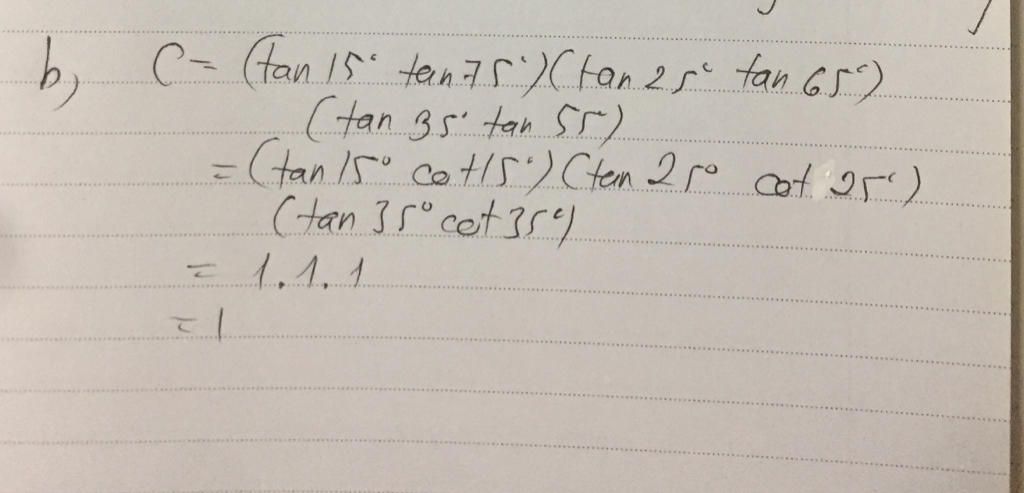 b, C = (tan 15° tan 75°)(tan 25° tan 65°)
(tan 35° tan 55)
= (tan 15° cot 15°)(tan 25° cot 25°)
(tan 35° cot 35°)
= 1.1.1
= 1